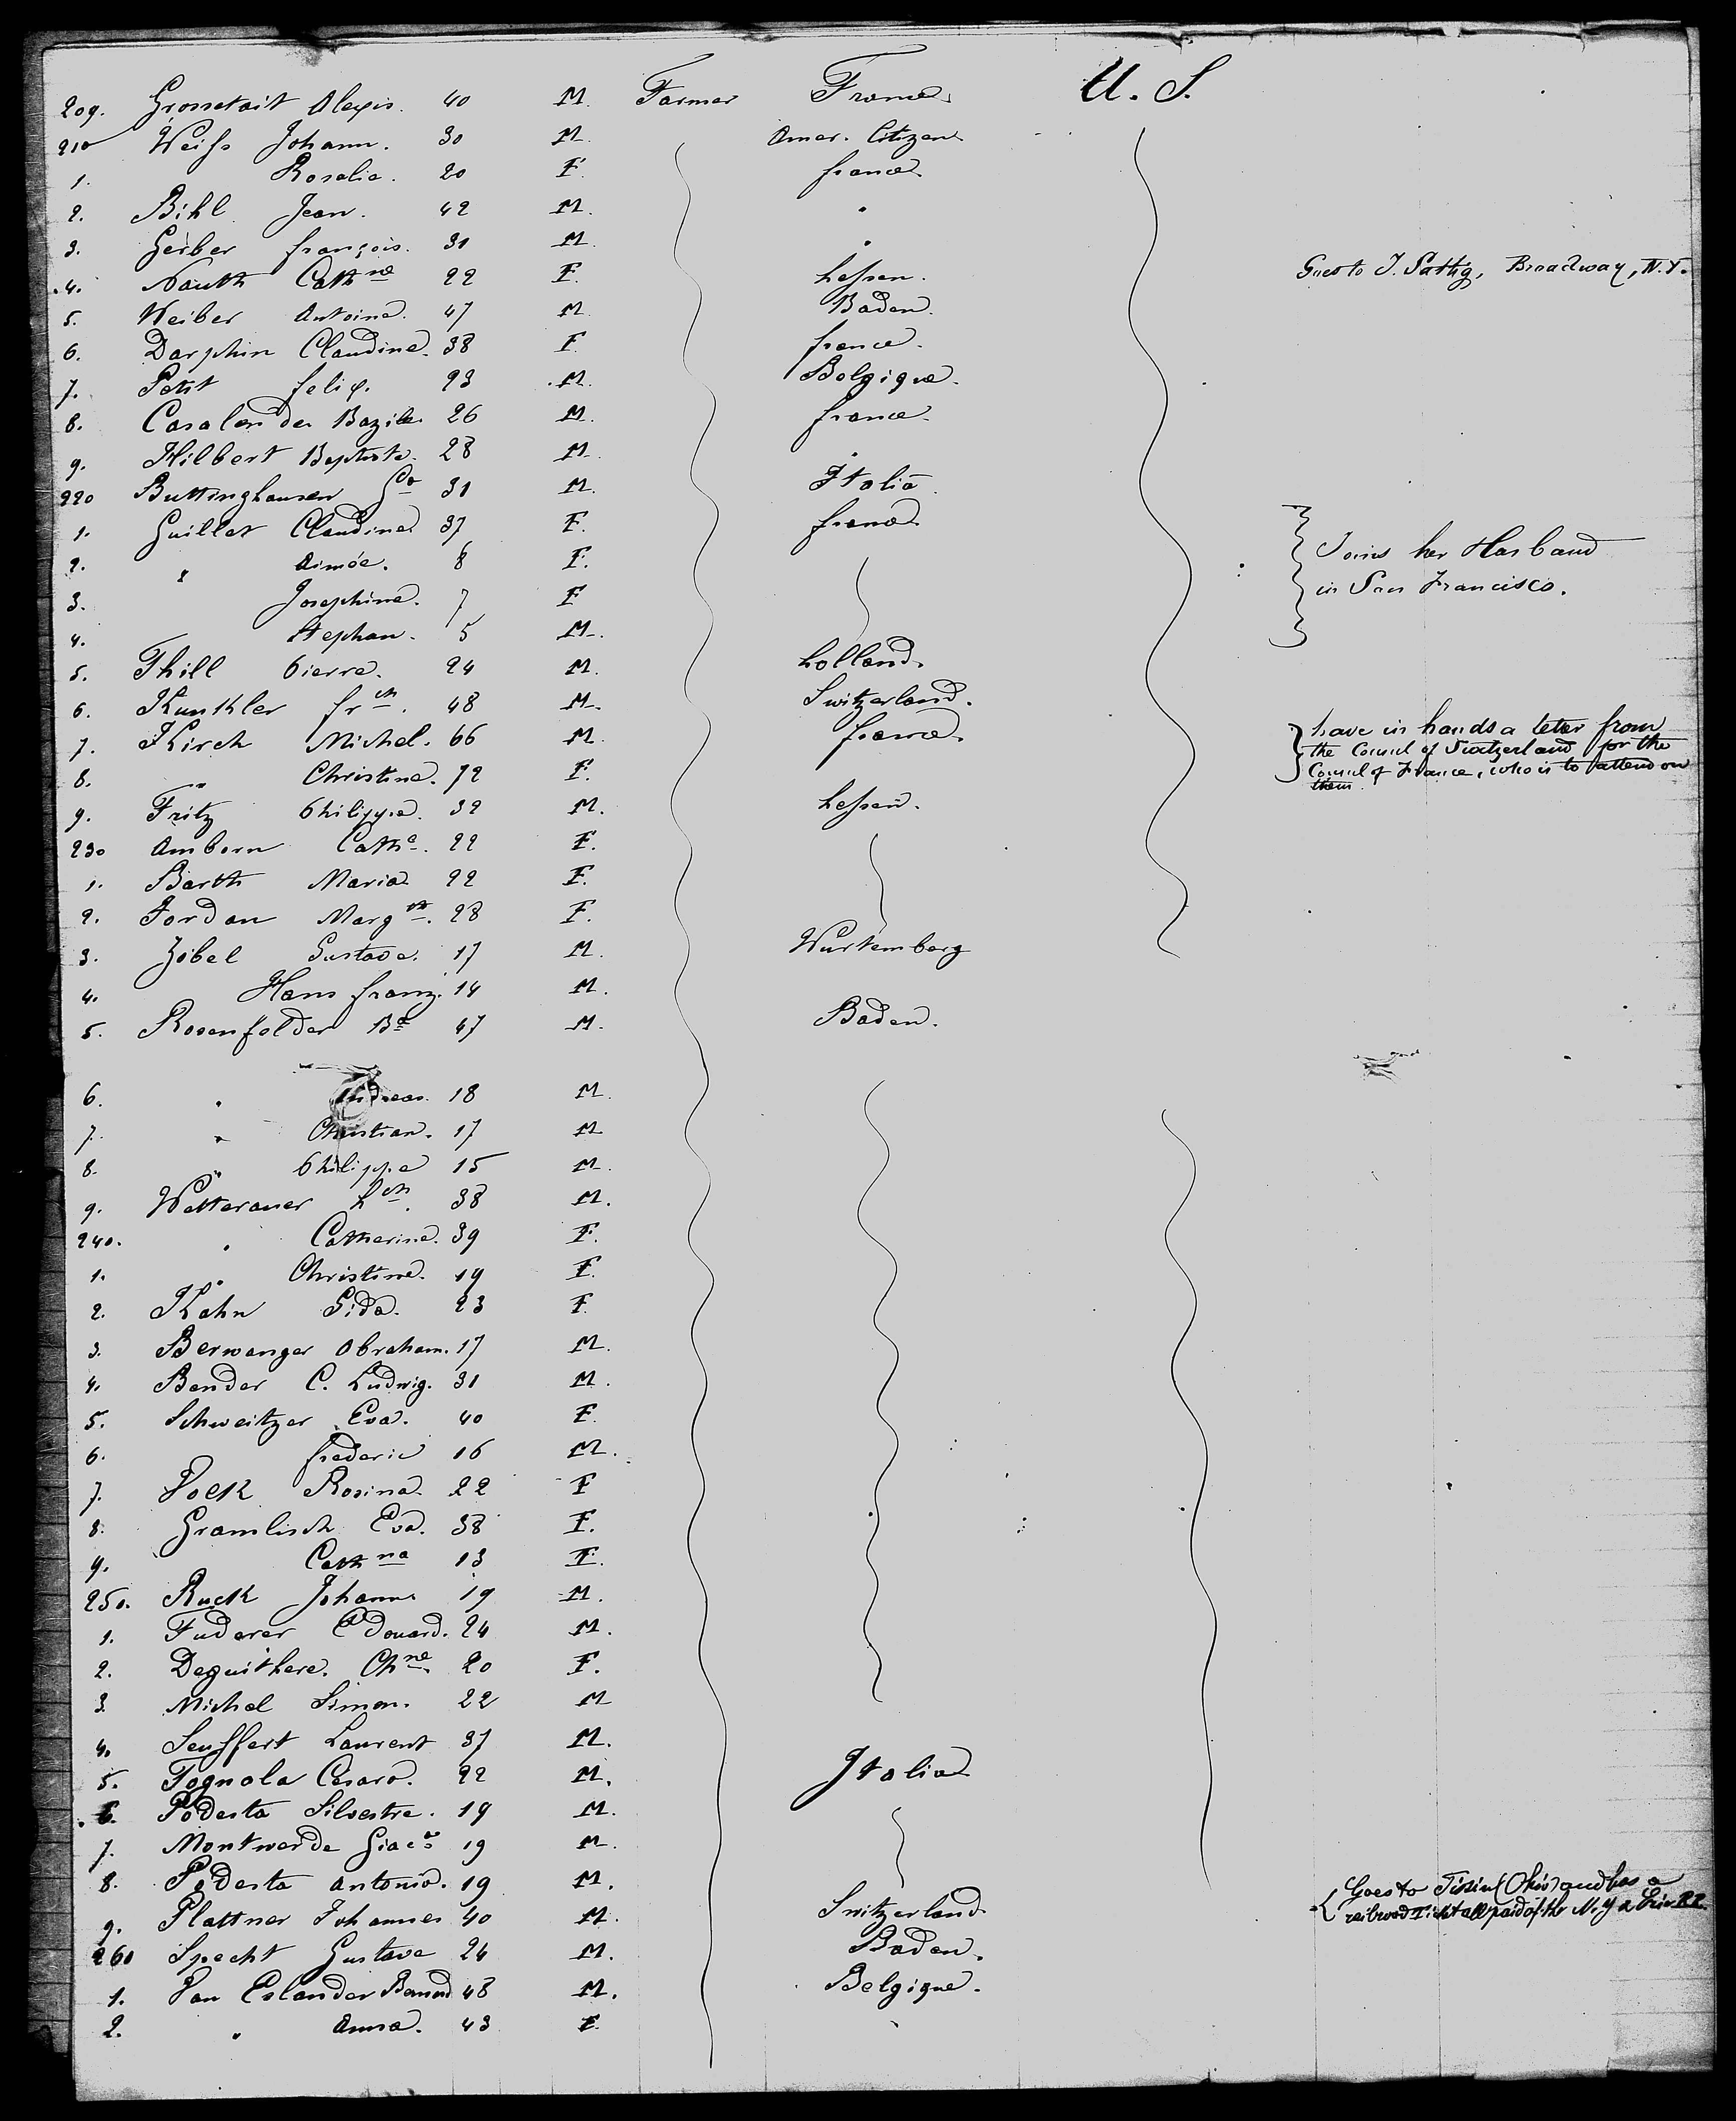 209. Grossetait Alexis. 40 M. Farmer France. U. S.
210 Weifs Johann. 30 M. Amer. Citizen.
1. Rosalie. 20 F. france.
2. Bihl Jean. 42 M. "
3. Gerber françois. 31 M. "
4. Nauth Cathne 22 F. hessen. Goes to J. Sattig, Broadway, N.Y.
5. Weiber Antoine. 47 M. Baden.
6. Darphin Claudine. 38 F france.
7. Petit felix. 23 M. Belgique.
8. Casalen der Bazile. 26 M. france.
9. Hilbert Baptiste. 28 M. "
220 Buttinghausen Go 31 M. Italia
1. Guillet Claudine 37 F. france. Joins her Husband
2. " Aimée. 8 F. in San Francisco.
3. Josephine. 7 F
4. Stephan. 5 M.
5. Thill Pierre. 24 M. holland.
6. Kunkler frch. 48 M. Switzerland.
7. Kirch Michel. 66 M. france. have in hands a leter from
the Consul of Switzerland for the
8. " Christine. 72 F. Consul of France, who is to attend on
them.
9. Fritz Philippe. 32 M. hessen.
230 Amborn Cathe. 22 F.
1. Barth Maria 22 F.
2. Jordan Margth. 28 F.
3. Zobel Gustave. 17 M. Wurtemberg
4. Hans franz. 14 M.
5. Rosenfelder Bd 47 M. Baden.
6. " Andreas. 18 M.
7. " Christian. 17 M
8. " Philippe 15 M.
9. Wetterauer hch. 38 M.
240. " Catherine. 39 F.
1. " Christine. 19 F.
2. Kahn Gida. 23 F
3. Berwanger Abraham. 17 M.
4. Bender C. Ludwig. 31 M.
5. Schweitzer Eva. 40 F.
6. frederic 16 M.
7. Rosina. 22 F
8. Gramlisch Eva. 38 F.
9. Cathna 13 F.
250. Ruck Johann. 19 M.
1. Fuderer Edouard. 24 M.
2. Deguithere. Chne. 20 F.
3. Michel Simon. 22 M
4. Seuffert Laurent 37 M.
5. Tognola Cesaro. 22 M. Italia
6. Podesta Silvestre. 19 M.
7. Montwerde Giaco 19 M.
8. Podesta Antonio. 19 M. Goes to Tiffin (Ohio) and has a
9. Plattner Johannes 40 M. Switzerland railroad Ticket all paid of the N. Y & Erie RR.
260 Specht Gustave 24 M. Baden.
1. Van Eslander Bernard 48 M. Belgique.
2. " Anna. 43 F. "